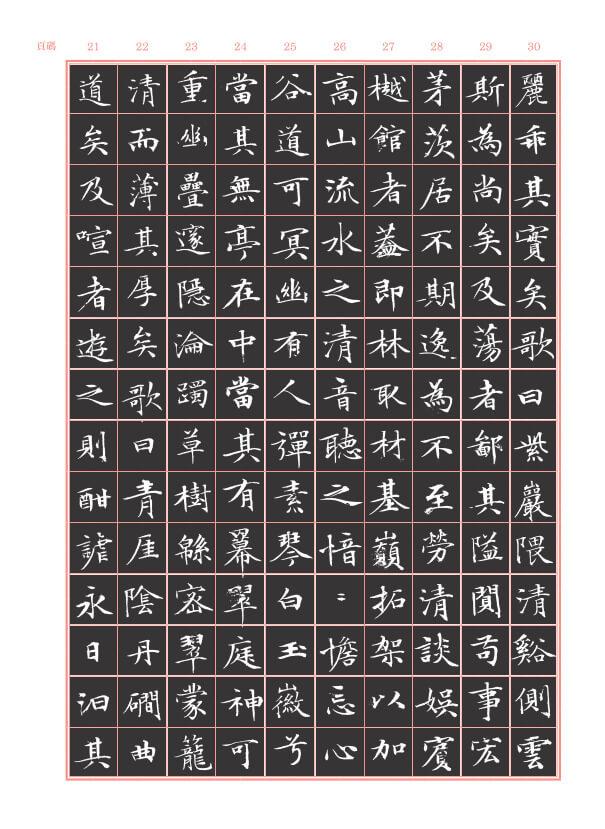 頁碼 21 22 23 24 25 26 27 28 29 30
道矣及喧者遊之則酣謔永日汩其
清而薄其厚矣歌曰青崖陰丹磵曲
重幽疊邃隱淪躅草樹緜密翠蒙籠
當其無亭在中當其有冪翠庭神可
谷道可冥幽有人彈素琴白玉徽兮
高山流水之清音聽之愔=憺忘心
樾館者蓋即林取材基巔拓架以加
茅茨居不期逸為不至勞清談娛賓
斯為尚矣及蕩者鄙其隘闃苟事宏
麗乖其實矣歌曰紫巖隈清谿側雲